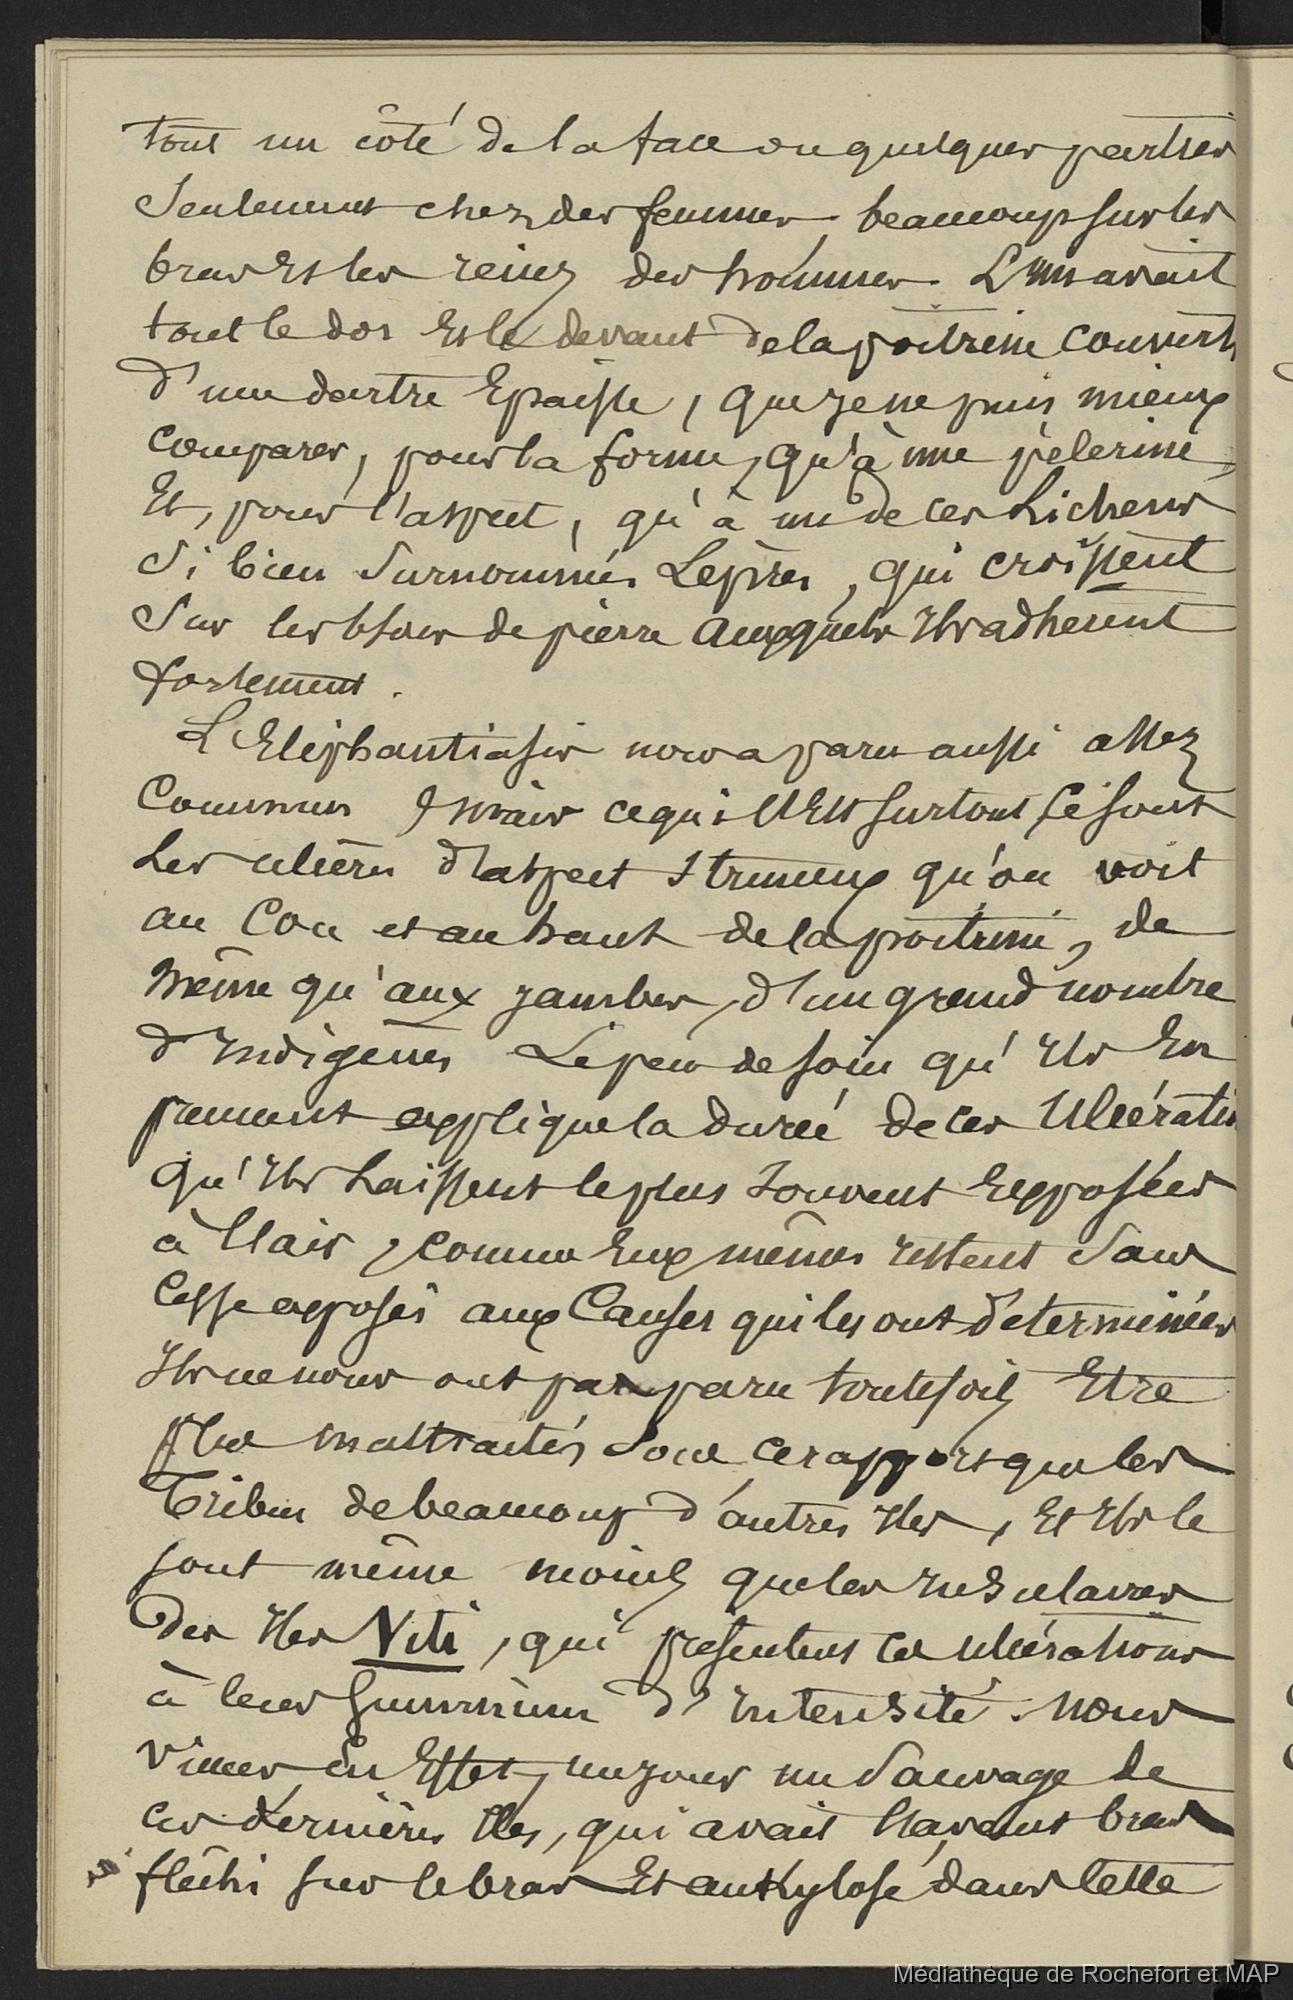 tout un côté de la face ou quelques parties
seulement chez des femmes, beaucoup sur les
bras et les reins des hommes. L'un avait
tout le dos et le devant de la poitrine couverts
d'une dartre épaisse, que je ne puis mieux
comparer, pour la forme, qu'à une pèlerine,
Et, pour l'aspect, qu'à un de ces Lichens
si bien surnommés Lèpres, qui croissent
sur les blocs de pierre auxquels ils adhèrent
fortement.
L'Eléphantiasis nous a paru aussi assez
commun, mais ce qui l'est surtout ce sont
les ulcères d'aspect strumeux qu'on voit
au Cou et au haut de la poitrine, de
même qu'aux jambes, d'un grand nombre
d'indigènes Le peu de soin qu'ils En
prennent explique la durée de ces Ulcératio
qu'ils Laissent le plus souvent Exposées
à l'air, comme Eux mêmes restent sans
cesse exposés aux Causes qui les ont déterminées
Ils ne nous ont pas paru toutefois Etre
plus maltraités sous ce rapport que les
Tribus de beaucoup d'autres Iles, Et ils le
sont même moins que les insulaires
des Iles Viti, qui présentent ces ulcérations
à leur summum d'intensité. Nous
vîmes En Effet, un jour un sauvage de
ces dernières Iles, qui avait l'avant bras
fléchi sur le bras Et ankylosé dans cette
Médiathèque de Rochefort et MAP